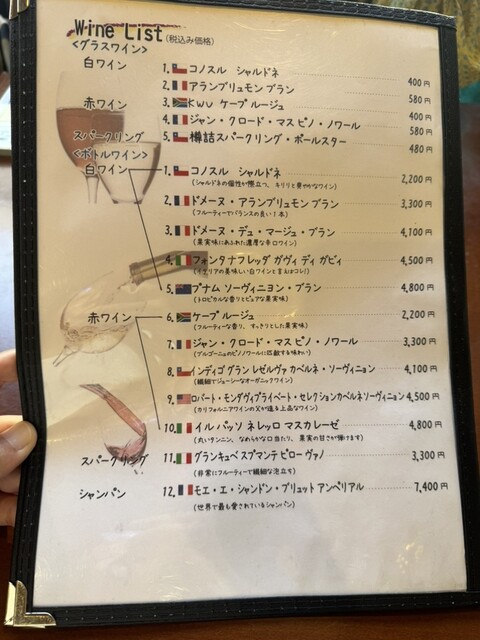 Wine List (税込み価格)
<グラスワイン>
白ワイン 1. コノスル シャルドネ 400円
2. アランブリュモン ブラン 580円
赤ワイン 3. KWV ケープ ルージュ 400円
4. ジャン・クロード・マス ピノ・ノワール 580円
スパークリング 5. 樽詰スパークリング・ポールスター 480円
<ボトルワイン>
白ワイン 1. コノスル シャルドネ 2,200円
(シャルドネの個性が際立つ、キリリと爽やかなワイン)
2. ドメーヌ・アランブリュモン ブラン 3,300円
(フルーティーでバランスの良い1本)
3. ドメーヌ・デュ・マージュ・ブラン 4,100円
(果実味にあふれた濃厚な辛口ワイン)
4. フォンタナフレッダ ガヴィ ディ ガビィ 4,500円
(イタリアの美味しい白ワインと言えばコレ!)
5. プナム ソーヴィニヨン・ブラン 4,800円
(トロピカルな香りとピュアな果実味)
赤ワイン 6. ケープ ルージュ 2,200円
(フルーティーな香り、すっきりとした果実味)
7. ジャン・クロード・マス ピノ・ノワール 3,300円
(ブルゴーニュのピノノワールに匹敵する味わい)
8. インディゴ グラン レゼルヴァ カベルネ・ソーヴィニョン 4,100円
(繊細でジューシーなオーガニックワイン)
9. ロバート・モンダヴィプライベート・セレクションカベルネソーヴィニョン 4,500円
(カリフォルニアワインの父が造る上品なワイン)
10. イル パッソ ネレッロ マスカレーゼ 4,800円
(丸いタンニン、なめらかな口当たり、果実の甘さが輝けます)
スパークリング 11. グランキュベ スプマンテ ピロー ヴァノ 3,300円
(非常にフルーティーで繊細な泡立ち)
シャンパン 12. モエ・エ・シャンドン・ブリュット アンペリアル 7,400円
(世界で最も愛されているシャンパン)